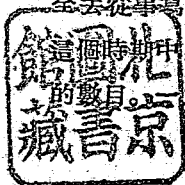 全去從事
這個時期中
的數目。
北京
圖書
館藏